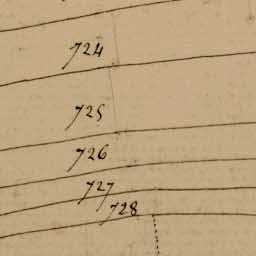 724
725
726
727
728